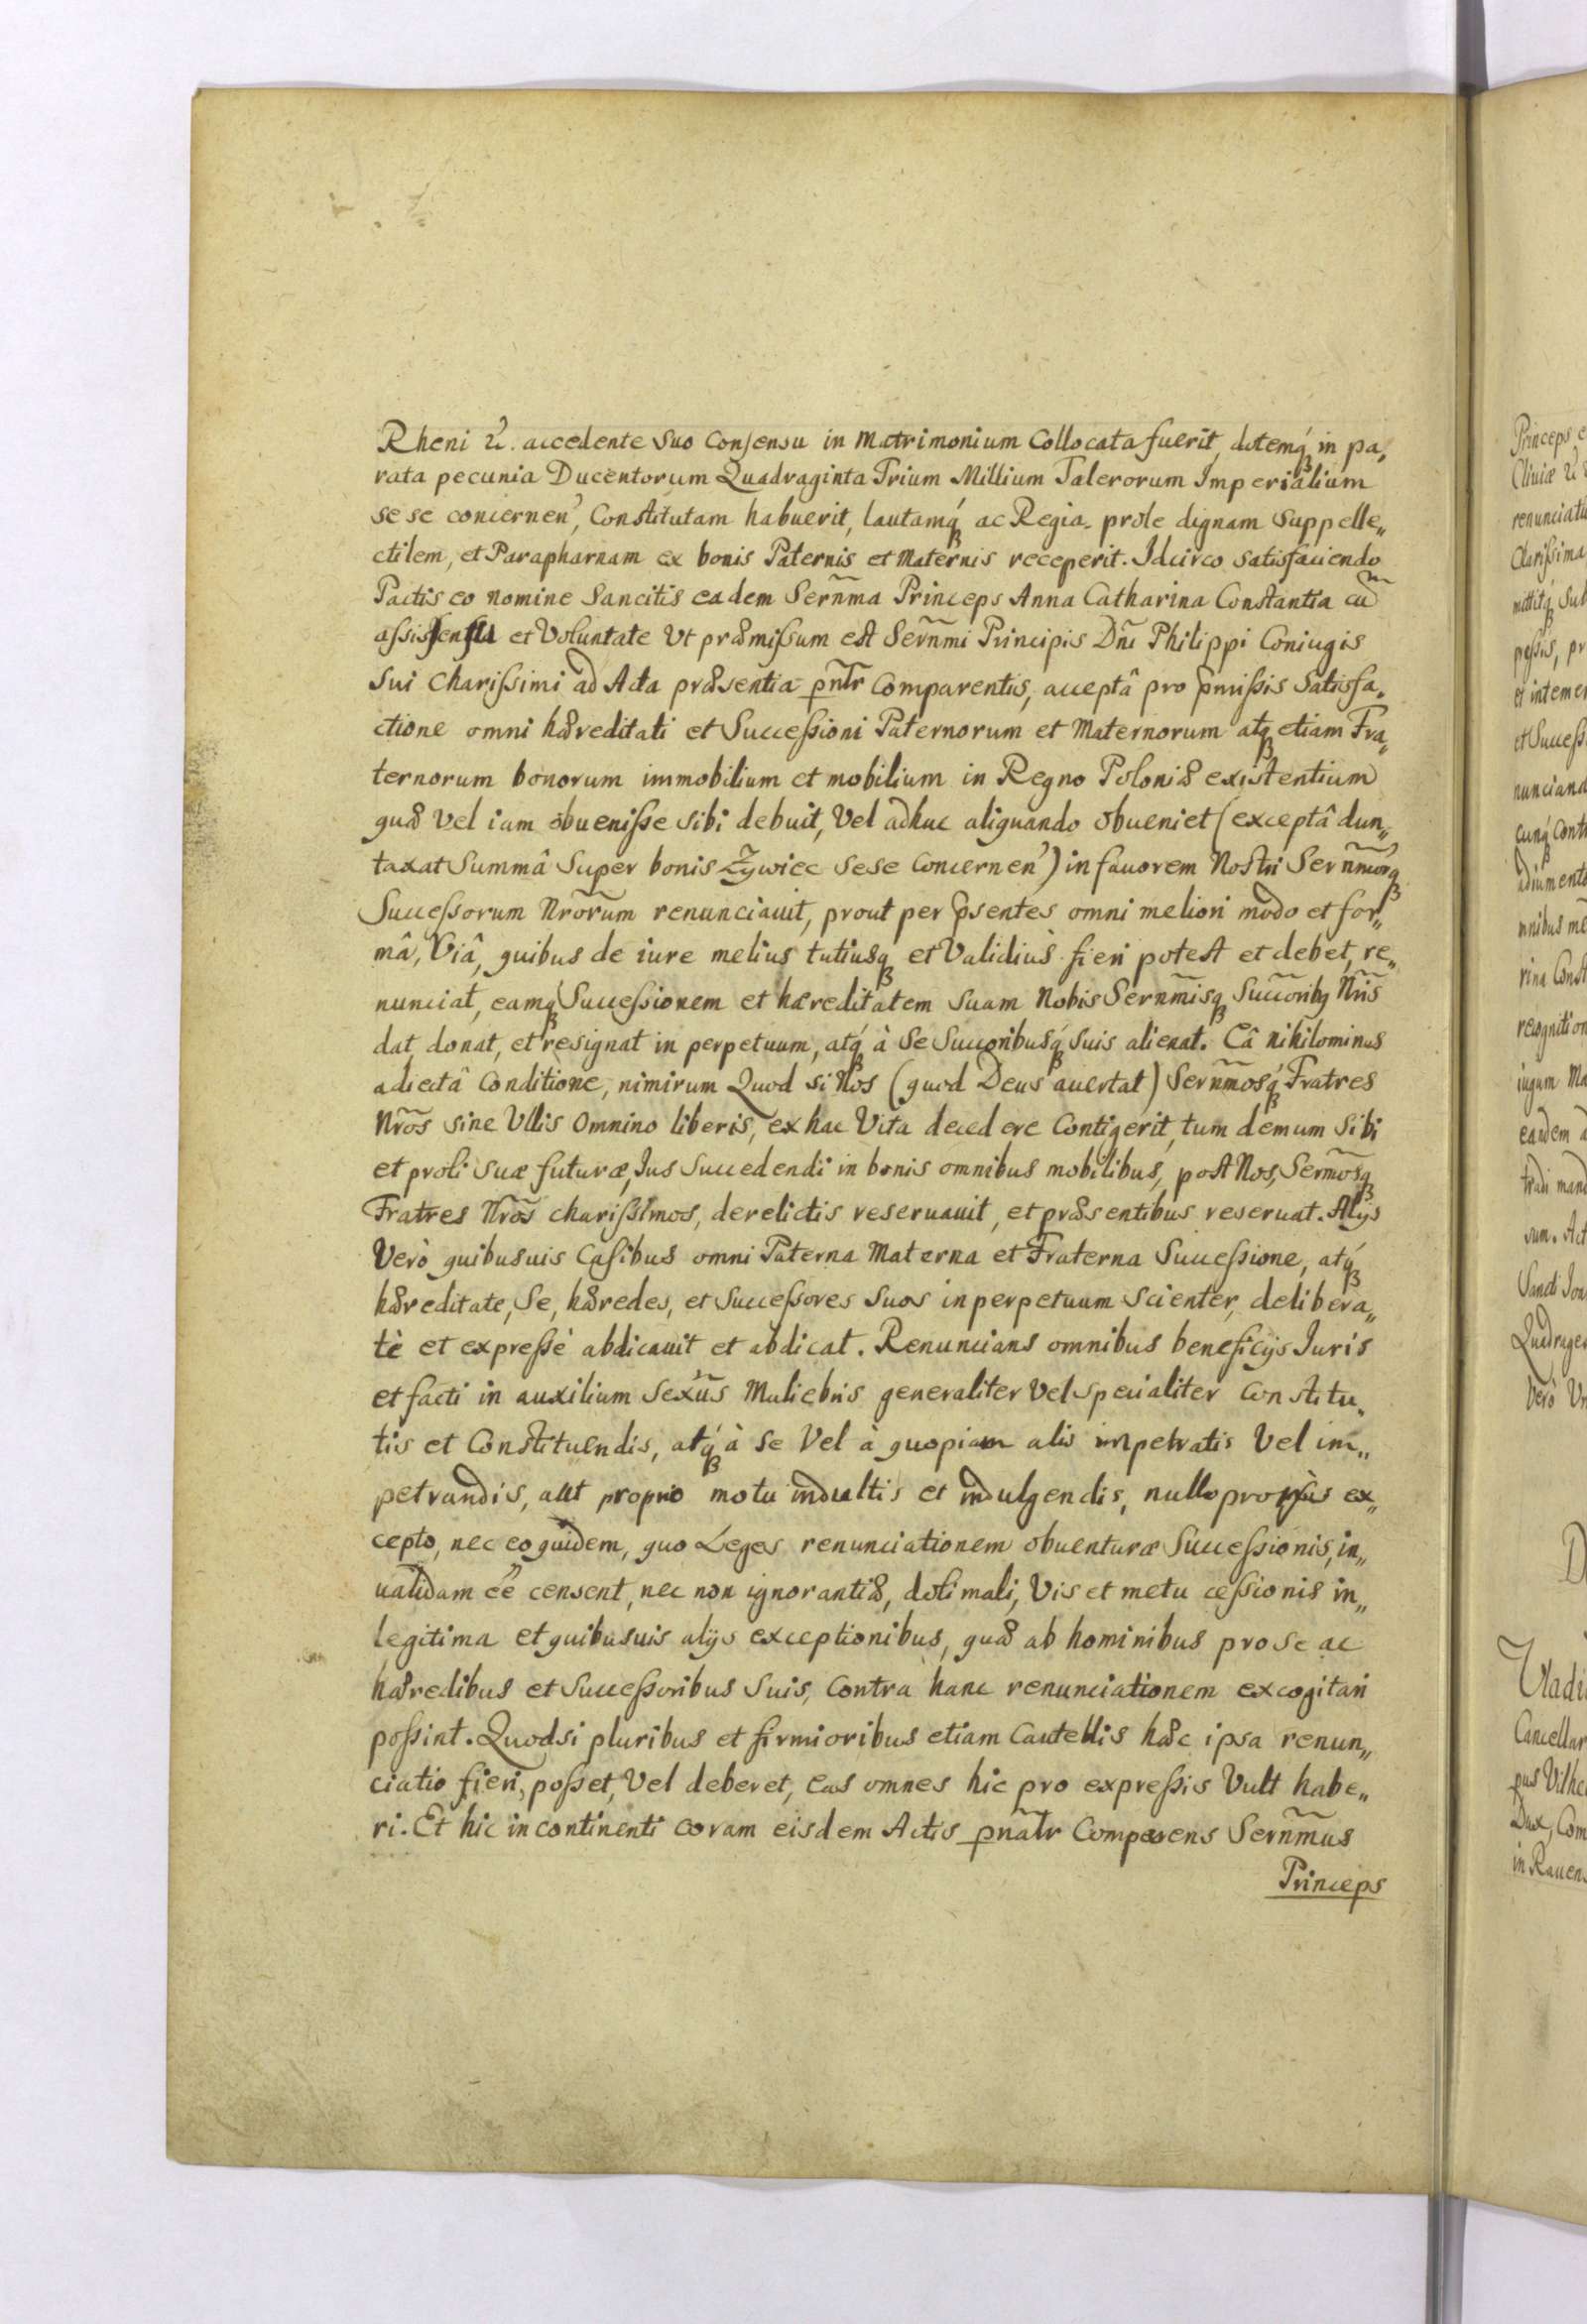 Rheni &c. accedente suo Consensu in Matrimonium Collocata fuerit, dotemq́ in pa,
rata pecunia Ducentorum Quadraginta Trium Millium Talerorum Imperialium
se se concernen', Constitutam habuerit, lautamq́ ac Regia prole dignam Suppelle„
ctilem, et Parapharnam ex bonis Paternis et Maternis receperit. Idcirco satisfaciendo
Pactis eo nomine Sancitis eadem Serñma Princeps Anna Catharina Constantia cũ
et Voluntate Vt præmissum est Serñmi Principis Dñi Philippi Coniugis
sui Charissimi ad Acta præsentia pñtr Comparentis, acceptâ pro pmissis Satisfa„
ctione omni hæreditati et Successioni Paternorum et Maternorum atq etiam Fra„
ternorum bonorum immobilium et mobilium in Regno Poloniæ existentium
quæ Vel iam obuenisse sibi debuit, Vel adhuc aliquando obueniet (exceptâ dun„
taxat Summâ Super bonis Żywiec sese Concernen') in fauorem Nostri Serñmorq
Successorum Nrõrum renunciauit, prout per psentes omni meliori modo et for„
mâ, Viâ, quibus de iure melius tutiusq et Validiùs fieri potest et debet, re„
nunciat, eamq́ Successionem et hæreditatem suam Nobis Serñmisq Succõribq Nr̃is
dat donat, et resignat in perpetuum, atq́ à Se Succoribusq́ suis alienat. Eâ nihilominus
adiectâ Conditione, nimirum Quod si Nos (quod Deus auertat) Serñmosq́ Fratres
Nrõs sine Vllis omnino liberis, ex hac Vita decedere Contigerit, tum demum Sibi
et proli suæ futuræ, Ius Succedendi in bonis omnibus mobilibus, post Nos, Sermõsq
Fratres Nrõs charissimos, derelictis reseruauit, et præsentibus reseruat. Alys
Verò quibusuis Casibus omni Paterna Materna et Fraterna Successione, atq́
hæreditate, Se, hæredes, et Successores Suos in perpetuum scienter, delibera„
tè et expressè abdicauit et abdicat. Renuncians omnibus beneficijs Iuris
et facti in auxilium Sexũs Muliebris generaliter Vel specialiter Constitu„
tis et Constituendis, atq́ à Se Vel à quopiam alis impetratis Vel im„
petrandis, aut proprio motu indultis et indulgendis, nullo prorsùs ex„
cepto, nec eo quidem, quo Leges renunciationem obuenturæ Successionis, in„
ualidam ee' censent, nec non ignorantiæ, doli mali, Vis et metu cessionis in„
legitima et quibusuis alijs exceptionibus, quæ ab hominibus pro se ac
hæredibus et Successoribus Suis, Contra hanc renunciationem excogitari
possint. Quodsi pluribus et firmioribus etiam Cautellis hæc ipsa renun„
ciatio fieri, posset, Vel deberet, eas omnes hic pro expressis Vult habe„
ri. Et hic in continenti coram eisdem Actis pnãtr Comparens Serñmus
Princeps